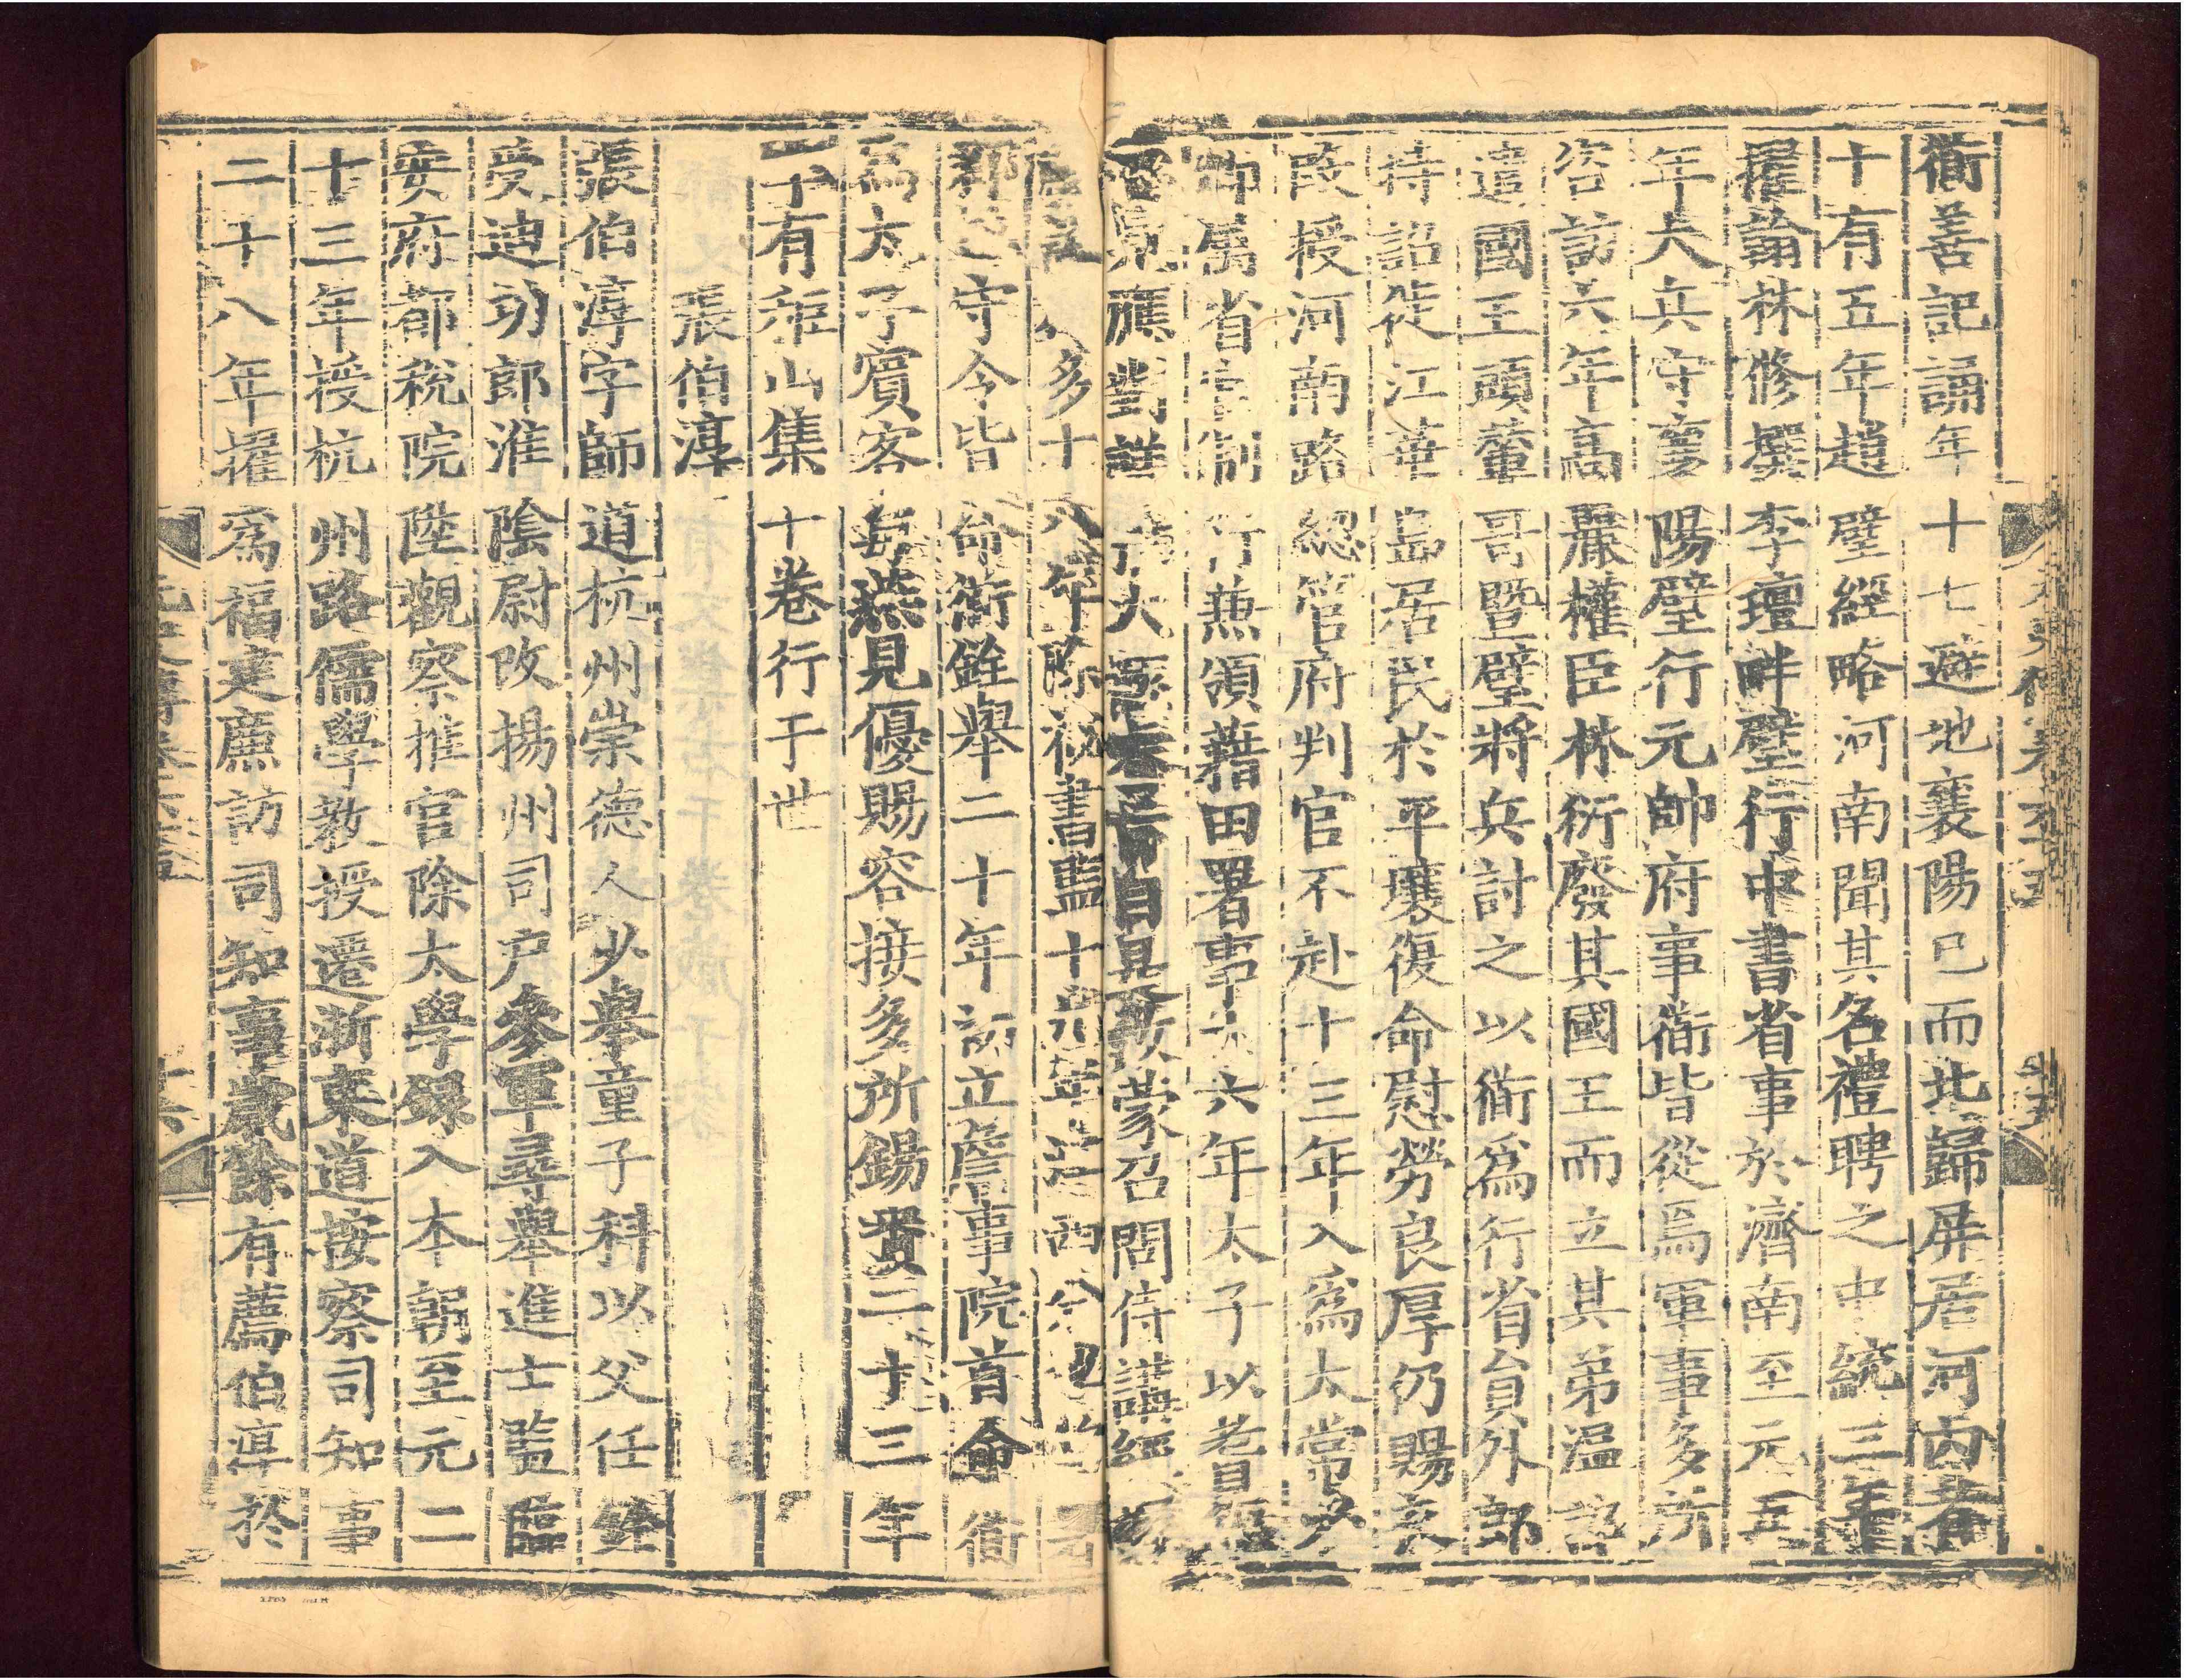 衜善記誦年十七避地襄陽已而北歸屏居河內者
十有五年趙璧經略河南聞其名禮聘之中統三年
擢翰林修撰李璮畔璧行中書省事於濟南至元五
年大兵守襄陽璧行元帥府事衜皆從焉軍事多所
咨訪六年高麗權臣林衍廢其國王而立其弟温詔
遣國王頭輦哥暨璧將兵討之以衜爲行省員外郎
持詔徙江華島居民於平壤復命慰勞良厚仍賜衣
段授河南路總管府判官不赴十三年入爲太常少
卿屬省官制行兼領藉田署事十六年太子以耆
見應對詳 大 自是 蒙召問侍講經
多十八年除祕書監十 江西
郡 守令皆命衜銓舉二十年初立詹事院首命衜
爲太子賓客每燕見優賜容接多所錫賚二十三年
子有雉山集十卷行于世
張伯淳
張伯淳字師道杭州崇德人少舉童子科以父任銓
受迪功郎淮陰尉改揚州司户參軍尋舉進士監臨
安府都稅院陞觀察推官除太學録入本朝至元二
十三年授杭州路儒學教授遷浙東道按察司知事
二十八年擢爲福建廉訪司知事歲餘有薦伯淳於